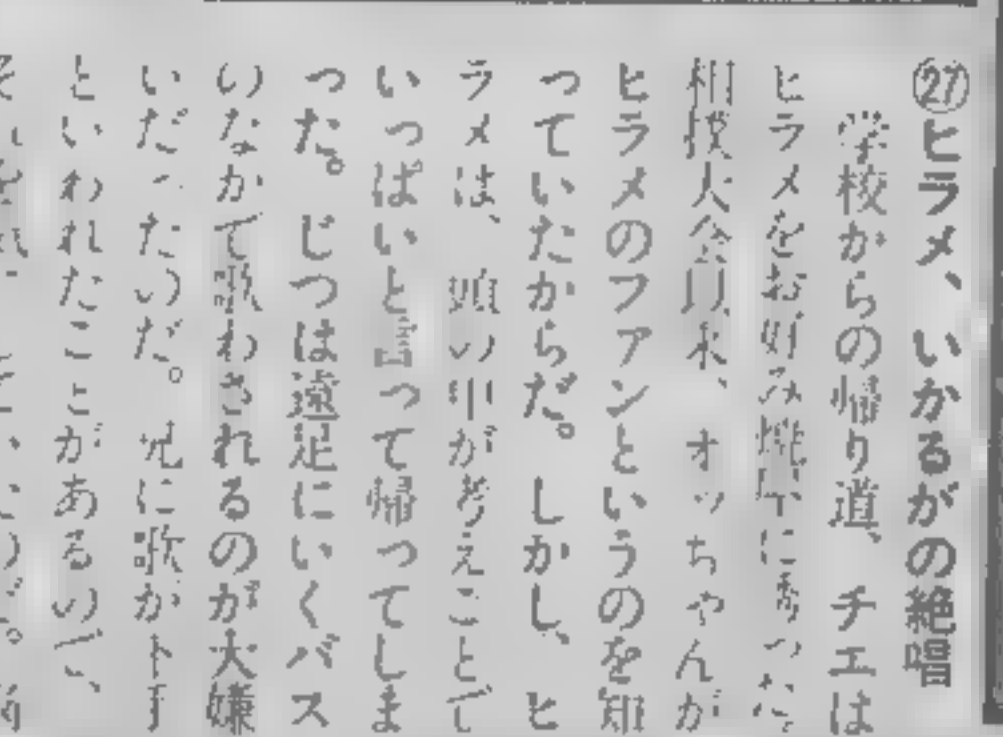 ㉗ヒラメ、いかるがの絶唱
学校からの帰り道、チエは
ヒラメをお好み焼屋に誘った。
相撲大会以来、オッちゃんが
ヒラメのファンというのを知
っていたからだ。しかし、ヒ
ラメは、頭の中が考えことで
いっぱいと言って帰ってしま
った。じつは遠足にいくバス
のなかで歌わされるのが大嫌
いだったのだ。兄に歌が下手
といわれたことがあるので、